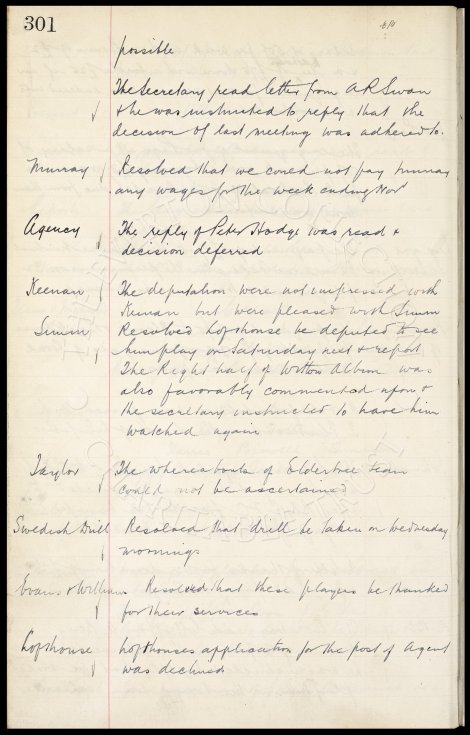 301
possible
The Secretary read letter from A R Swan
& he was instructed to reply that the
decision of last meeting was adhered to.
Murray Resolved that we could not pay Murray
any wages for the week ending Nov
Agency The reply of Peter Hodge was read &
decision deferred
Keenan The deputation were not impressed with
Keenan but were pleased with Simm
Simm Resolved Lofthouse be deputed to see
him play on Saturday next & report
The Right half of Witton Albion was
also favorably commented upon &
the secretary instructed to have him
watched again
Taylor The whereabouts of Eldertree team
could not be ascertained
Swedish Drill Resolved that drill be taken on Wednesday
mornings
Evans & Williams Resolved that these players be thanked
for their services
Lofthouse Lofthouses application for the post of Agent
was declined